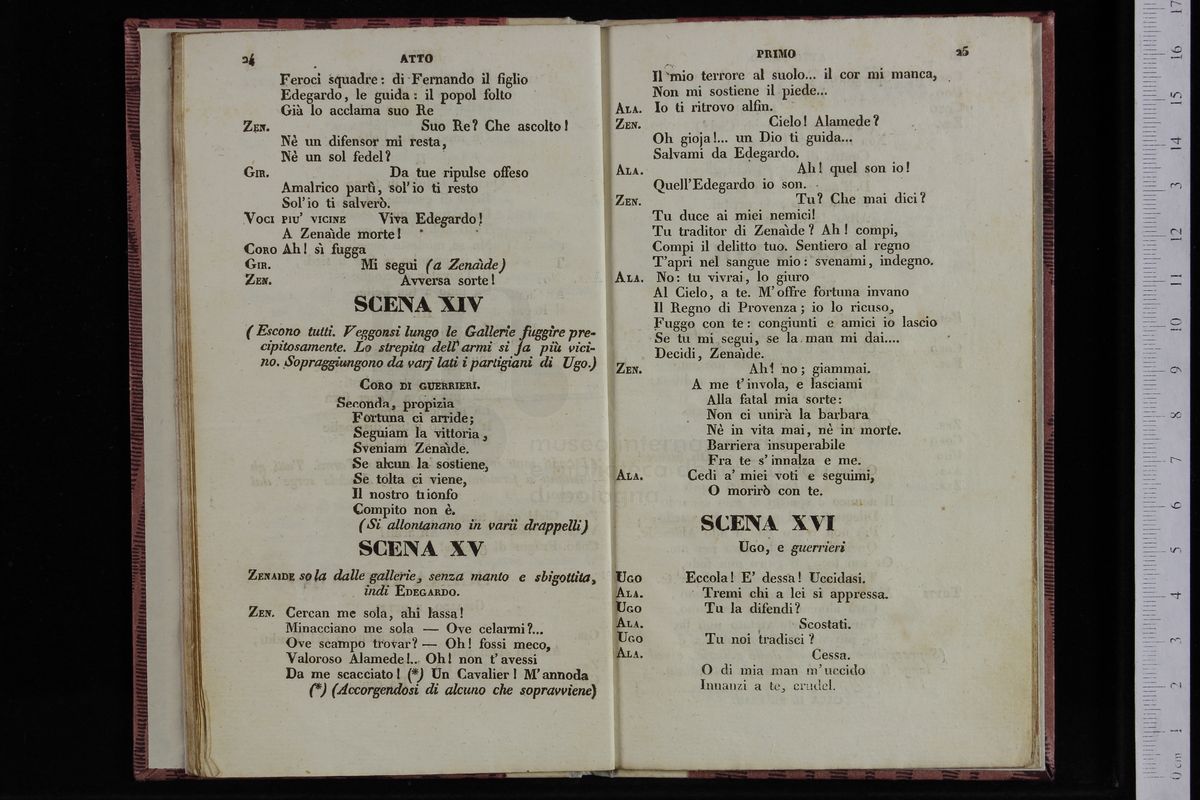 24
ATTO
Feroci squadre: di Fernando il figlio
Edegardo, le guida: il popol folto
Già lo acclama suo Re
ZEN. Suo Re? Che ascolto!
Nè un difensor mi resta,
Nè un sol fedel?
GIR. Da tue ripulse offeso
Amalrico partì, sol' io ti resto
Sol' io ti salverò.
VOCI PIU' VICINE Viva Edegardo!
A Zenaìde morte!
CORO Ah! sì fugga
GIR. Mi segui (a Zenaìde)
ZEN. Avversa sorte!
SCENA XIV
(Escono tutti. Veggonsi lungo le Gallerie fuggire pre-
cipitosamente. Lo strepito dell' armi si fa più vici-
no. Sopraggiungono da varj lati i partigiani di Ugo.)
CORO DI GUERRIERI.
Seconda, propizia
Fortuna ci arride;
Seguiam la vittoria,
Sveniam Zenaìde.
Se alcun la sostiene,
Se tolta ci viene,
Il nostro trionfo
Compito non è.
(Si allontanano in varii drappelli)
SCENA XV
ZENAIDE sola dalle gallerie, senza manto e sbigottita,
indi EDEGARDO.
ZEN. Cercan me sola, ahi lassa!
Minacciano me sola — Ove celarmi?...
Ove scampo trovar? — Oh! fossi meco,
Valoroso Alamede!.. Oh! non t' avessi
Da me scacciato! (*) Un Cavalier! M' annoda
(*) (Accorgendosi di alcuno che sopravviene)
PRIMO
25
Il mio terrore al suolo... il cor mi manca,
Non mi sostiene il piede...
ALA. Io ti ritrovo alfin.
ZEN. Cielo! Alamede?
Oh gioja!... un Dio ti guida...
Salvami da Edegardo.
ALA. Ah! quel son io!
Quell' Edegardo io son.
ZEN. Tu? Che mai dici?
Tu duce ai miei nemici!
Tu traditor di Zenaìde? Ah! compi,
Compi il delitto tuo. Sentiero al regno
T'apri nel sangue mio: svenami, indegno.
ALA. No: tu vivrai, lo giuro
Al Cielo, a te. M' offre fortuna invano
Il Regno di Provenza; io lo ricuso,
Fuggo con te: congiunti e amici io lascio
Se tu mi segui, se la man mi dai....
Decidi, Zenaìde.
ZEN. Ah! no; giammai.
A me t' invola, e lasciami
Alla fatal mia sorte:
Non ci unirà la barbara
Nè in vita mai, nè in morte.
Barriera insuperabile
Fra te s' innalza e me.
ALA. Cedi a' miei voti e seguimi,
O morirò con te.
SCENA XVI
UGO, e guerrieri
UGO Eccola! E' dessa! Uccidasi.
ALA. Tremi chi a lei si appressa.
UGO Tu la difendi?
ALA. Scostati.
UGO Tu noi tradisci?
ALA. Cessa.
O di mia man m' uccido
Innanzi a te, crudel.